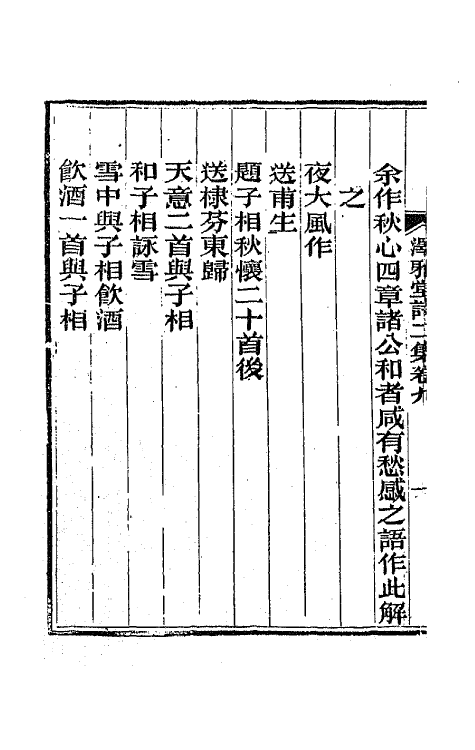 雅堂詩二集卷九
一
余作秋心四章諸公和者咸有愁感之語作此解
之
夜大風作
送甫生
題子相秋懷二十首後
送棣芬東歸
天意二首與子相
和子相詠雪
雪中與子相飲酒
飲酒一首與子相